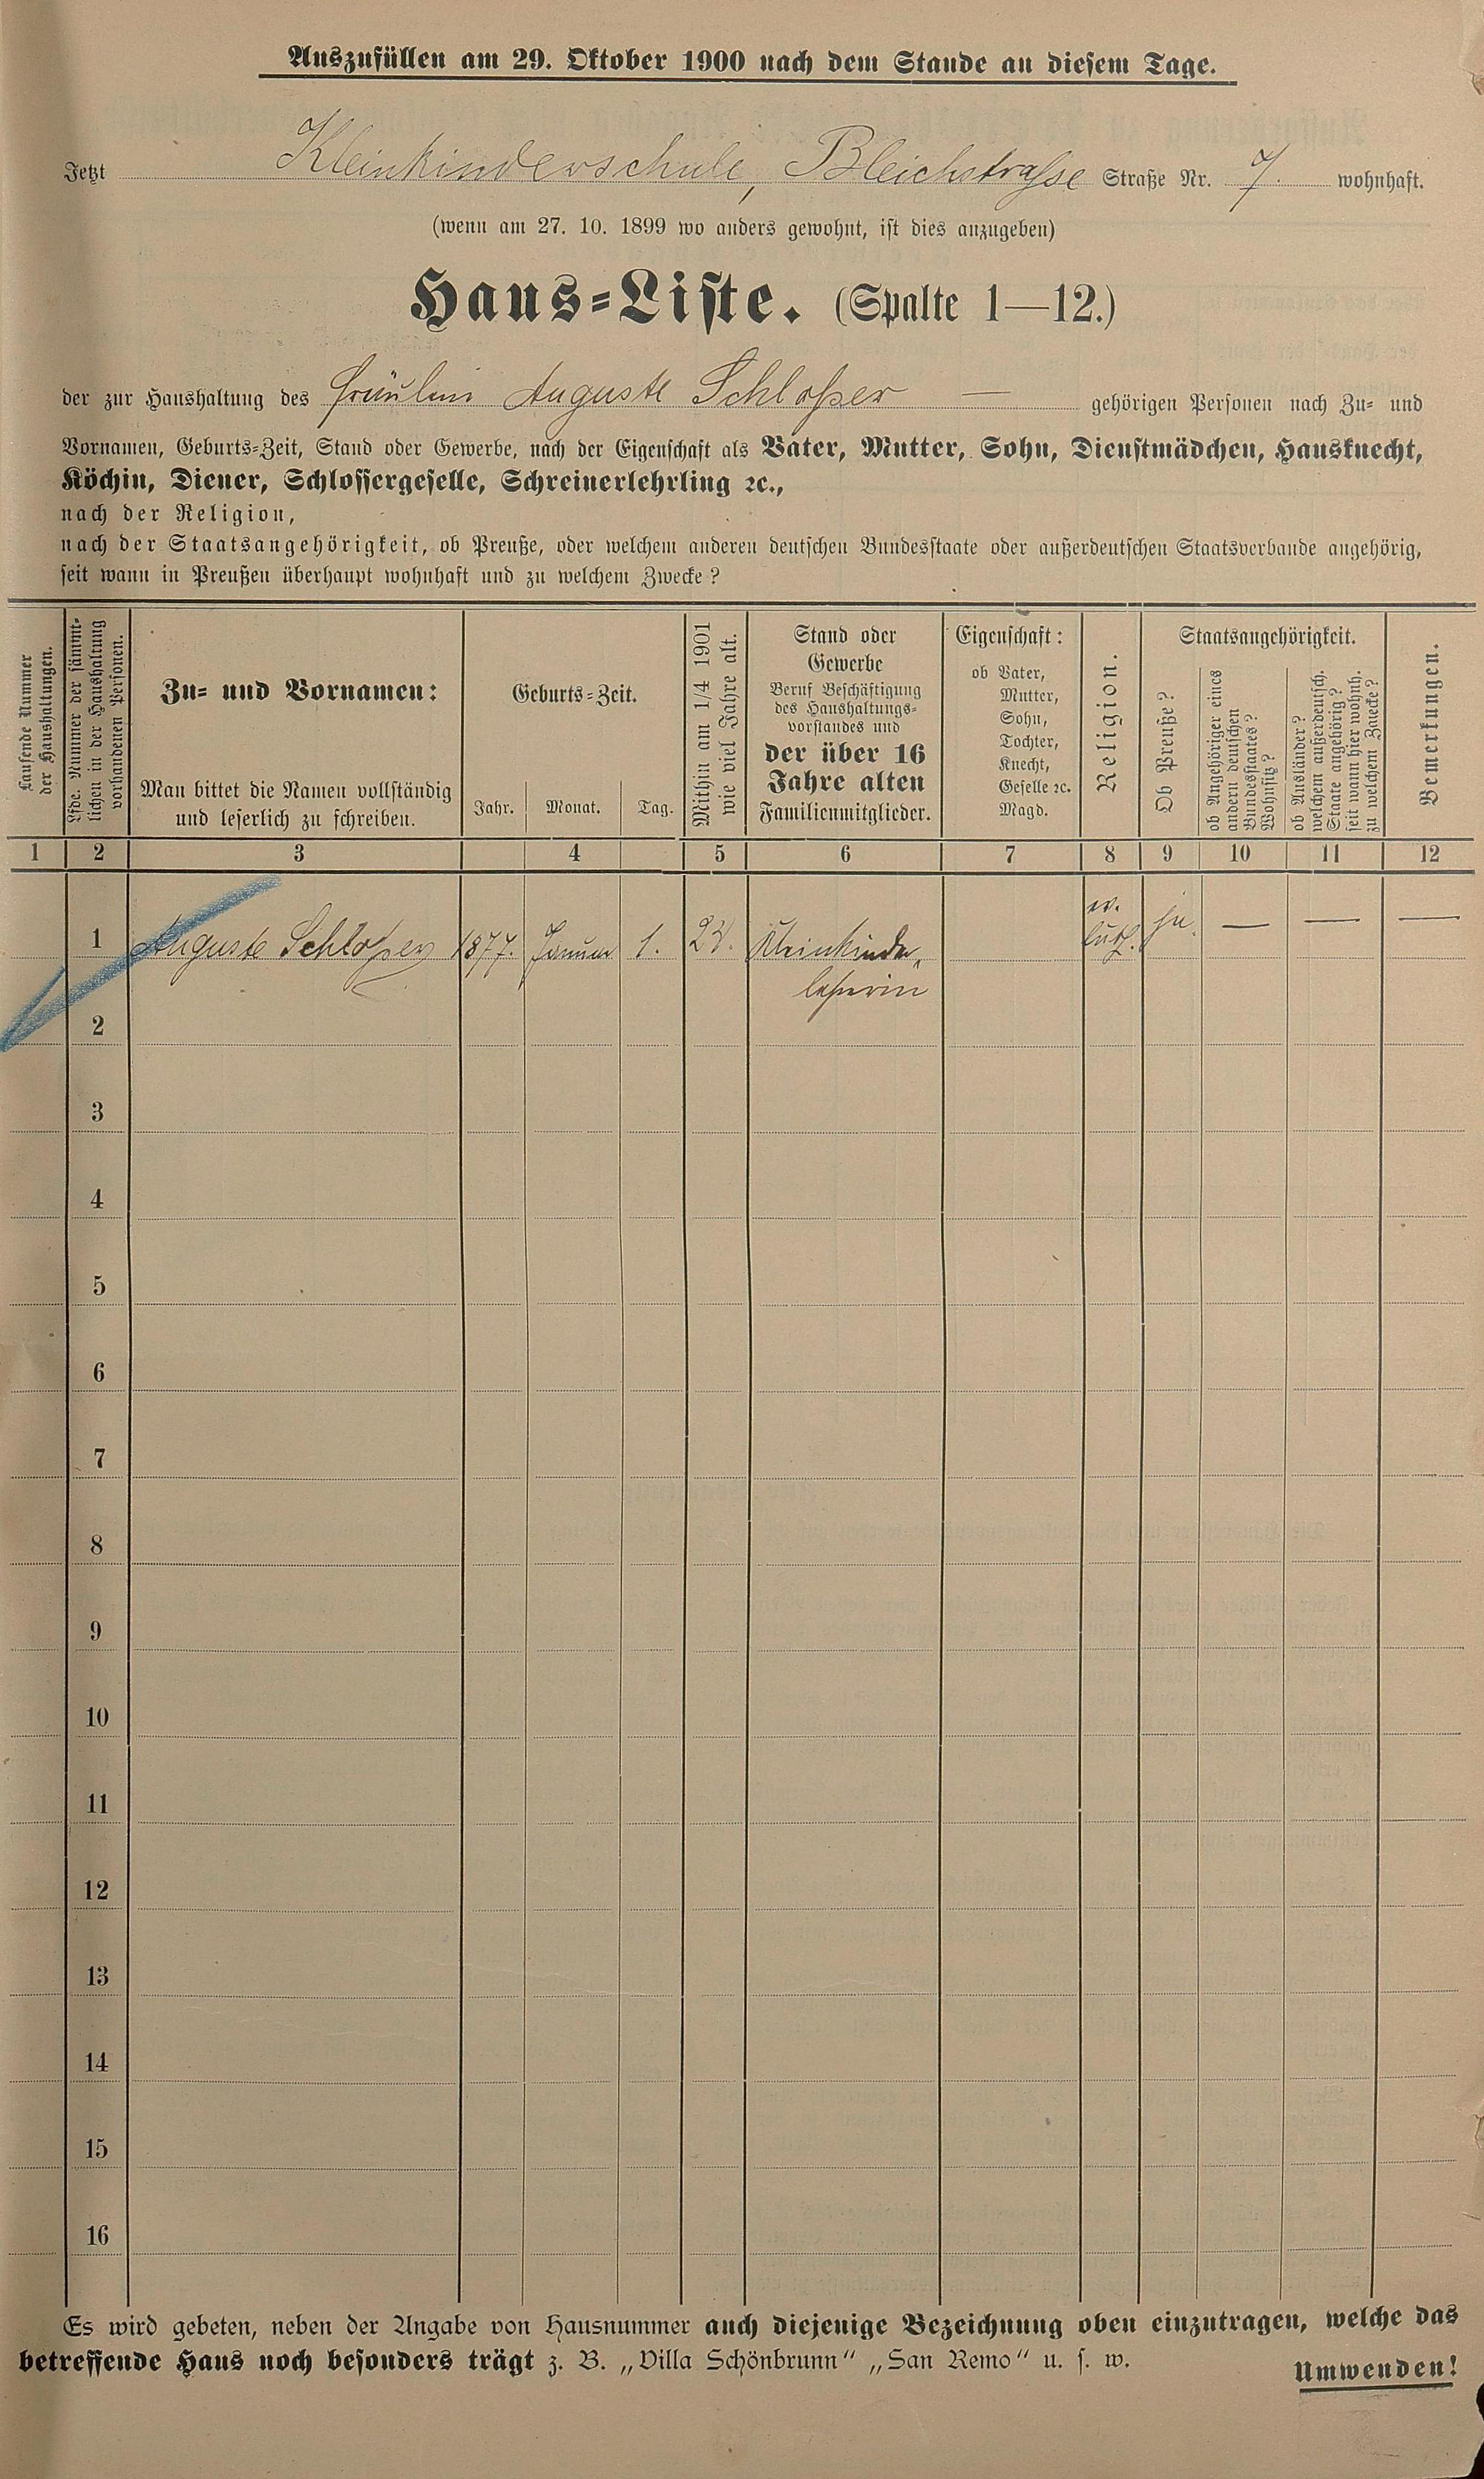 Auszufüllen am 29. Oktober 1900 nach dem Stande an diesem Tage.
Jetzt Kleinkinderschule, Bleichstraße Straße Nr. 7. wohnhaft.
(wenn am 27. 10. 1899 wo anders gewohnt, ist dies anzugeben)
Haus-Liste. (Spalte 1—12.)
der zur Haushaltung des Fräulein Auguste Schloßer — gehörigen Personen nach Zu- und
Vornamen, Geburts-Zeit, Stand oder Gewerbe, nach der Eigenschaft als Vater, Mutter, Sohn, Dienstmädchen, Hausknecht,
Köchin, Diener, Schlossergeselle, Schreinerlehrling ꝛc.,
nach der Religion,
nach der Staatsangehörigkeit, ob Preuße, oder welchem anderen deutschen Bundesstaate oder außerdeutschen Staatsverbande angehörig,
seit wann in Preußen überhaupt wohnhaft und zu welchem Zwecke?
Laufende Nummer
der Haushaltungen.
Lfde. Nummer der sämmt-
lichen in der Haushaltung
vorhandenen Personen.
Zu- und Vornamen:
Man bittet die Namen vollständig
und leserlich zu schreiben.
Geburts-Zeit.
Jahr. Monat. Tag.
Mithin am 1/4 1901
wie viel Jahre alt.
Stand oder
Gewerbe
Beruf Beschäftigung
des Haushaltungs-
vorstandes und
der über 16
Jahre alten
Familienmitglieder.
Eigenschaft:
ob Vater,
Mutter,
Sohn,
Tochter,
Knecht,
Geselle ꝛc.
Magd.
Religion.
Staatsangehörigkeit.
Ob Preuße?
ob Angehöriger eines
andern deutschen
Bundesstaates?
Wohnsitz?
ob Ausländer?
welchem außerdeutsch.
Staate angehörig?
seit wann hier wohnh.
zu welchem Zwecke?
Bemerkungen.
1 2 3 4 5 6 7 8 9 10 11 12
1 Auguste Schloßer 1877. Januar 1. 24. Kleinkinder- ev. luth. ja. — — —
lehrerin
2
3
4
5
6
7
8
9
10
11
12
13
14
15
16
Es wird gebeten, neben der Angabe von Hausnummer auch diejenige Bezeichnung oben einzutragen, welche das
betreffende Haus noch besonders trägt z. B. „Villa Schönbrunn" „San Remo" u. s. w.
Umwenden!